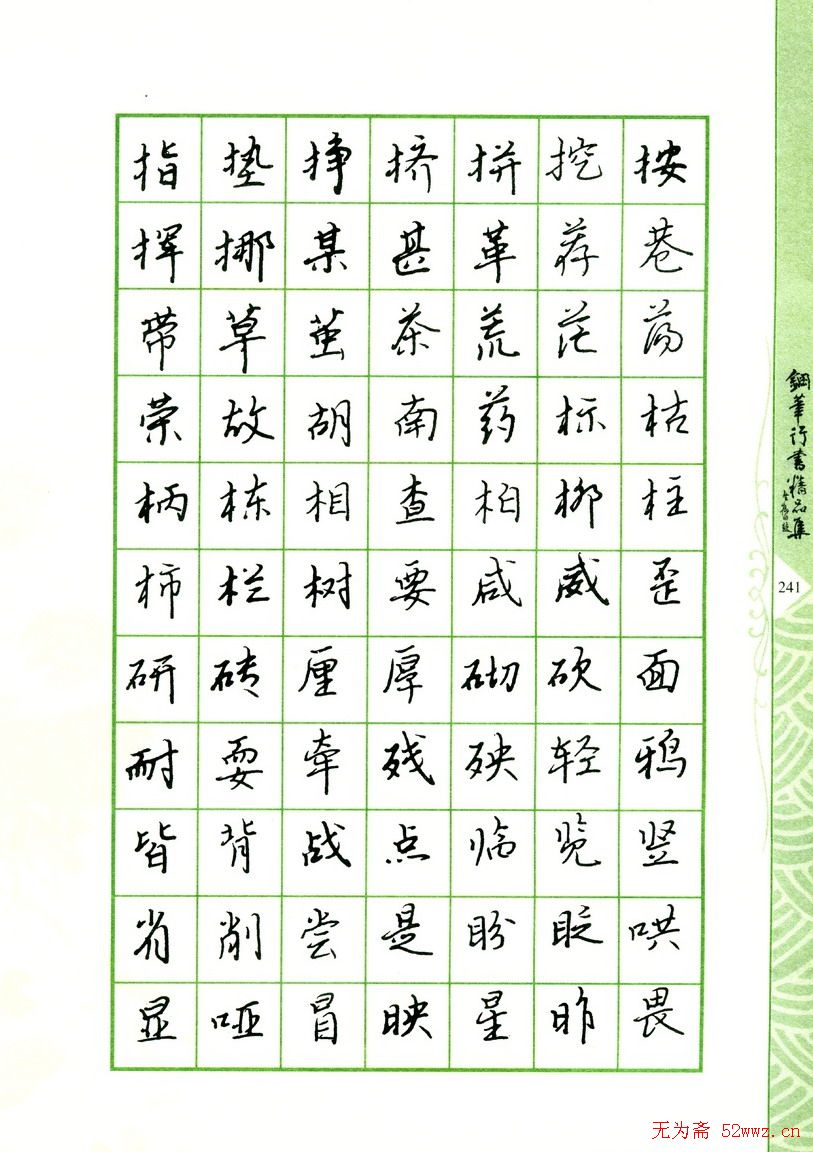 指垫挣挤拼挖按
挥挪某甚革荐巷
带草茧茶荒茫荡
荣故胡南药标枯
柄栋相查柏柳柱
柿栏树要咸威歪
研砖厘厚砌砍面
耐耍牵残殃轻鸦
皆背战点临览竖
省削尝是盼眨哄
显哑冒映星昨畏
鋼筆行書精品集
241
无为斋 52wwz.cn